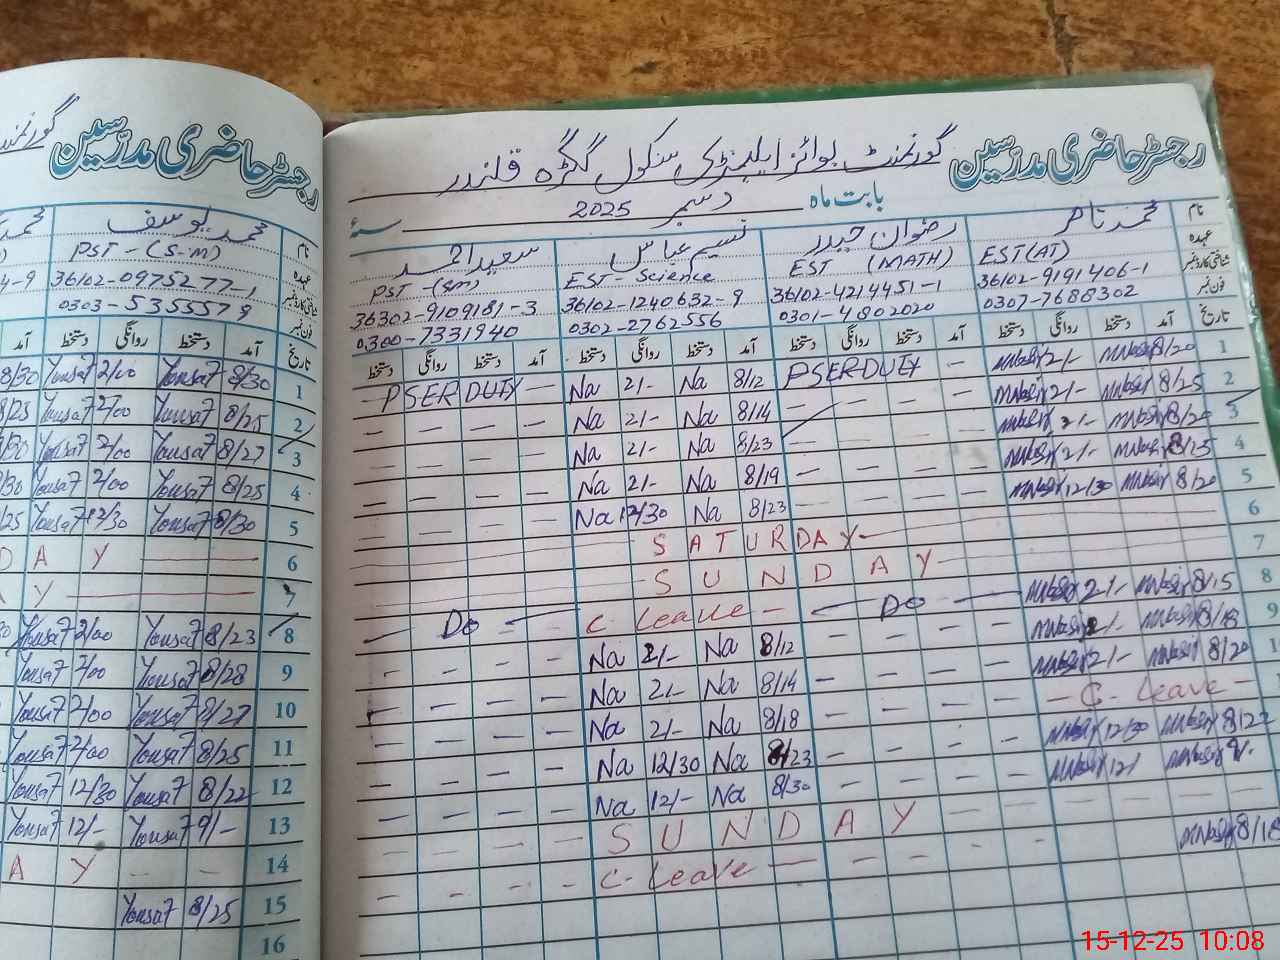 رجسٹر حاضری مدرسین
محمد یوسف
نام
PST-(S-M)
عہدہ
36102-0975277-1
شناختی کارڈ نمبر
0303-5355579
فون نمبر
دستخط روانگی دستخط آمد تاریخ
8/30 Yousaf 2/00 Yousaf 8/30 1
8/25 Yousaf 2/00 Yousaf 8/25 2
Yousaf 2/00 Yousaf 8/27 3
Yousaf 2/00 Yousaf 8/25 4
Yousaf 12/30 Yousaf 8/30 5
D A Y 6
A Y 7
Yousaf 2/00 Yousaf 8/23 8
Yousaf 2/00 Yousaf 8/28 9
Yousaf 2/00 Yousaf 8/27 10
Yousaf 2/00 Yousaf 8/25 11
Yousaf 12/30 Yousaf 8/22 12
Yousaf 12/- Yousaf 9/- 13
A Y 14
Yousaf 8/25 15
16
رجسٹر حاضری مدرسین
گورنمنٹ بوائز ایلیمنٹری سکول گگڑہ قلندر
بابت ماہ دسمبر 2025 سنۂ
نام محمد ناصر رضوان حیدر نسیم عباس سعید احمد
عہدہ
EST(AT)
EST (MATH)
EST-Science
PST-(SM)
شناختی کارڈ نمبر
36102-9191406-1
36102-4214451-1
36102-1240632-9
36302-9109181-3
فون نمبر
0307-7688302
0301-4802020
0302-2762556
0300-7331940
تاریخ آمد دستخط روانگی دستخط آمد دستخط روانگی دستخط آمد دستخط روانگی دستخط آمد دستخط روانگی دستخط
PSER DUTY - Na 2/- Na 8/12 PSER DUTY - MNasir 2/- MNasir 8/20 1
Na 2/- Na 8/14 MNasir 2/- MNasir 8/25 2
Na 2/- Na 8/23 MNasir 2/- MNasir 8/20 3
Na 2/- Na 8/19 MNasir 2/- MNasir 4
Na 12/30 Na 8/23 MNasir 12/30 MNasir 8/20 5
SATURDAY 6
SUNDAY 7
Do C. Leave - Do MNasir 2/- MNasir 8/15 8
Na 2/- Na 8/12 MNasir MNasir 9
Na 2/- Na 8/14 MNasir 2/- MNasir 8/20
Na 2/- Na 8/18 - C. Leave -
Na 12/30 Na 8/23 MNasir 12/30 MNasir 8/22
Na 12/- Na 8/30 MNasir 12/ MNasir
SUNDAY
C. Leave MNasir 8/18
15-12-25 10:08